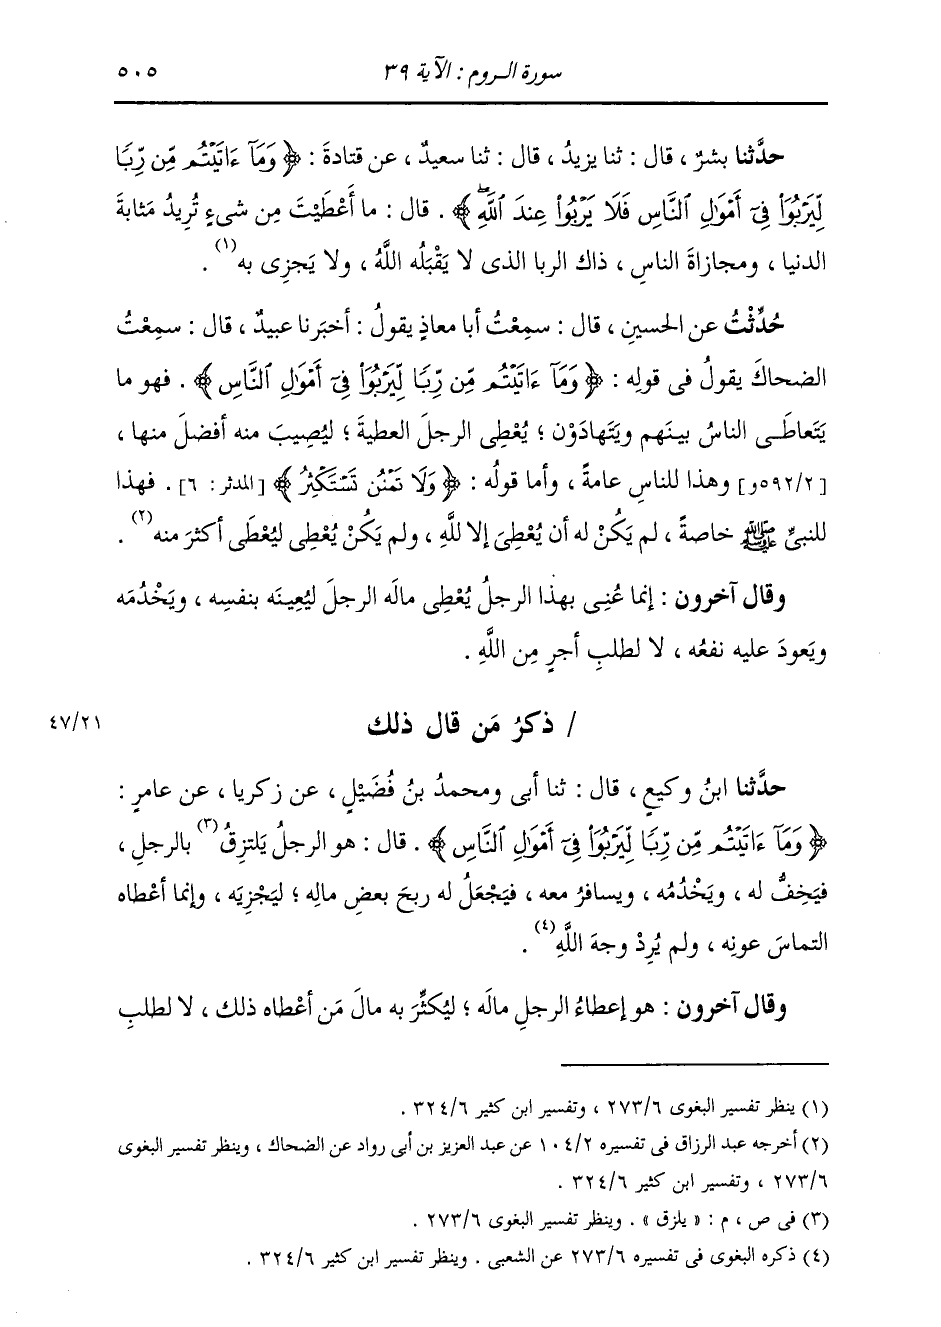 سورة الروم : الآية ٣٩
٥٠٥
حدَّثنا بشرٌ ، قال : ثنا يزيدُ ، قال : ثنا سعيدٌ ، عن قتادةَ : ﴿ وَمَآ ءَاتَيْتُم مِّن رِّبًا
لِّيَرْبُوَا۟ فِىٓ أَمْوَٰلِ ٱلنَّاسِ فَلَا يَرْبُوا۟ عِندَ ٱللَّهِۖ ﴾ . قال : ما أَعْطَيْتَ مِن شىءٍ تُرِيدُ مَثابةَ
الدنيا ، ومجازاةَ الناسِ ، ذاك الربا الذى لا يَقْبَلُه اللَّهُ ، ولا يَجزِى به(١) .
حُدِّثْتُ عن الحسينِ ، قال : سمِعْتُ أبا معاذٍ يقولُ : أخبَرنا عبيدٌ ، قال : سمِعْتُ
الضحاكَ يقولُ فى قولِه : ﴿ وَمَآ ءَاتَيْتُم مِّن رِّبًا لِّيَرْبُوَا۟ فِىٓ أَمْوَٰلِ ٱلنَّاسِ ﴾ . فهو ما
يَتَعاطَى الناسُ بينَهم ويَتَهادَوْن ؛ يُعْطِى الرجلُ الرجلَ العطيةَ ؛ ليُصِيبَ منه أفضلَ منها ،
[٥٩٢/٢و] وهذا للناسِ عامةً ، وأما قولُه : ﴿ وَلَا تَمْنُن تَسْتَكْثِرُ ﴾ [المدثر: ٦] . فهذا
للنبىِّ ﷺ خاصةً ، لم يَكُنْ له أن يُعْطِىَ إلا للَّهِ ، ولم يَكُنْ يُعْطِى ليُعْطَى أكثرَ منه(٢) .
وقال آخرون : إنما عُنِى بهذا الرجلُ يُعْطِى مالَه الرجلَ ليُعِينَه بنفسِه ، ويَخْدُمَه
ويَعودَ عليه نفعُه ، لا لطلبِ أجرٍ مِن اللَّهِ .
/ ذكرُ مَن قال ذلك
٤٧/٢١
حدَّثنا ابنُ وكيعٍ ، قال : ثنا أبى ومحمدُ بنُ فُضَيْلٍ ، عن زكريا ، عن عامرٍ :
﴿ وَمَآ ءَاتَيْتُم مِّن رِّبًا لِّيَرْبُوَا۟ فِىٓ أَمْوَٰلِ ٱلنَّاسِ ﴾ . قال : هو الرجلُ يَلتزِقُ(٣) بالرجلِ ،
فيَخِفُّ له ، ويَخْدُمُه ، ويسافرُ معه ، فيَجْعَلُ له ربحَ بعضِ مالِه ؛ ليَجْزِيَه ، وإنما أعْطاه
التماسَ عونِه ، ولم يُرِدْ وجهَ اللَّهِ(٤) .
وقال آخرون : هو إعطاءُ الرجلِ مالَه ؛ ليُكثِّرَ به مالَ مَن أعْطاه ذلك ، لا لطلبِ
(١) ينظر تفسير البغوى ٢٧٣/٦ ، وتفسير ابن كثير ٣٢٤/٦ .
(٢) أخرجه عبد الرزاق فى تفسيره ١٠٤/٢ عن عبد العزيز بن أبى رواد عن الضحاك ، وينظر تفسير البغوى
٢٧٣/٦ ، وتفسير ابن كثير ٣٢٤/٦ .
(٣) فى ص ، م : « يلزق » . وينظر تفسير البغوى ٢٧٣/٦ .
(٤) ذكره البغوى فى تفسيره ٢٧٣/٦ عن الشعبي . وينظر تفسير ابن كثير ٣٢٤/٦ .